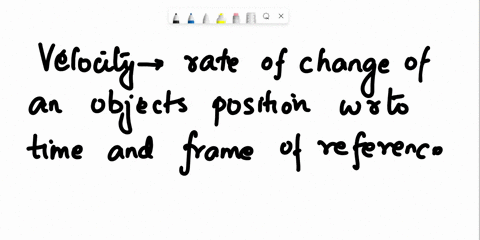 Velocity → rate of change of
an objects position wrto
time and frame of referenc.